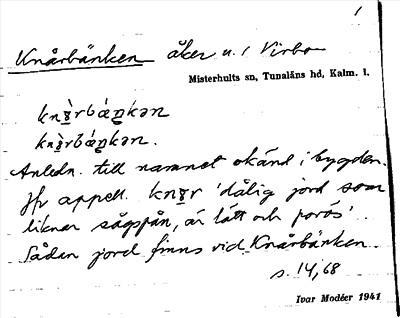 1
Knårbänken åker u. / Virbo
Misterhults sn, Tunaläns hd, Kalm. l.
knɤ̀rbáŋkən
knɤ̀rbáŋkən.
Anledn. till namnet okänd i bygden.
Jfr appell. knɤr 'dålig jord som
liknar sågspån, är lätt och porös'.
Sådan jord finns vid Knårbänken.
s. 14, 68
Ivar Modéer 1941